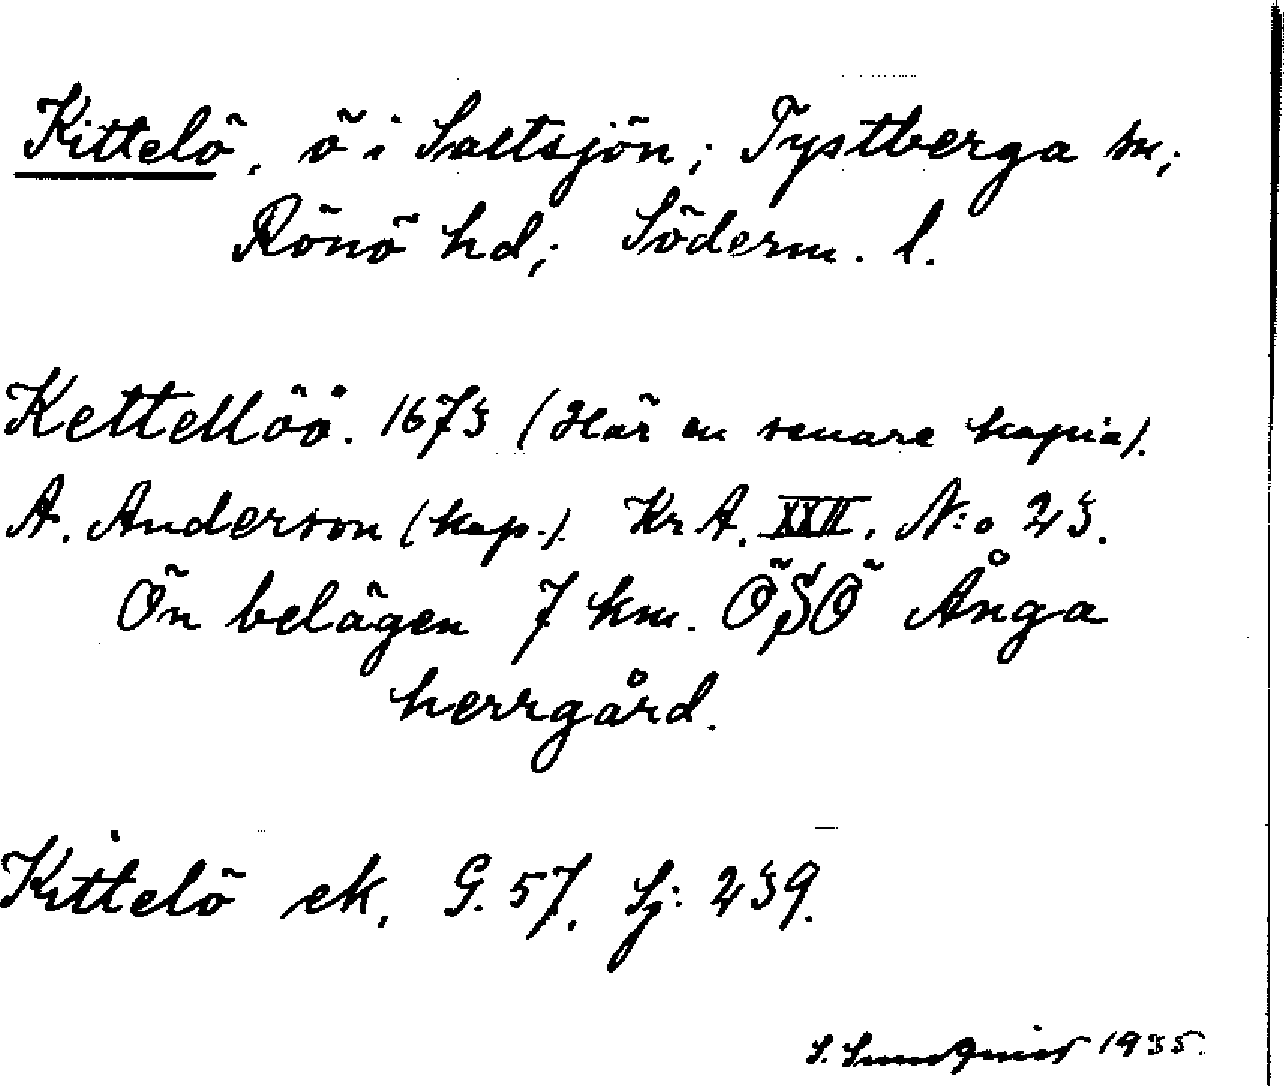 Kittelö, ö i Saltsjön; Tystberga sn;
Rönö hd; Söderm. l.
Kettellöö. 1673 (Här en senare kopia).
A. Anderson (kap.). Kr A. XXII. N:o 23.
Ön belägen 7 km. ÖSÖ Ånga
herrgård.
Kittelö ek. G. 57. Sj: 239.
S. Sundquist 1935.